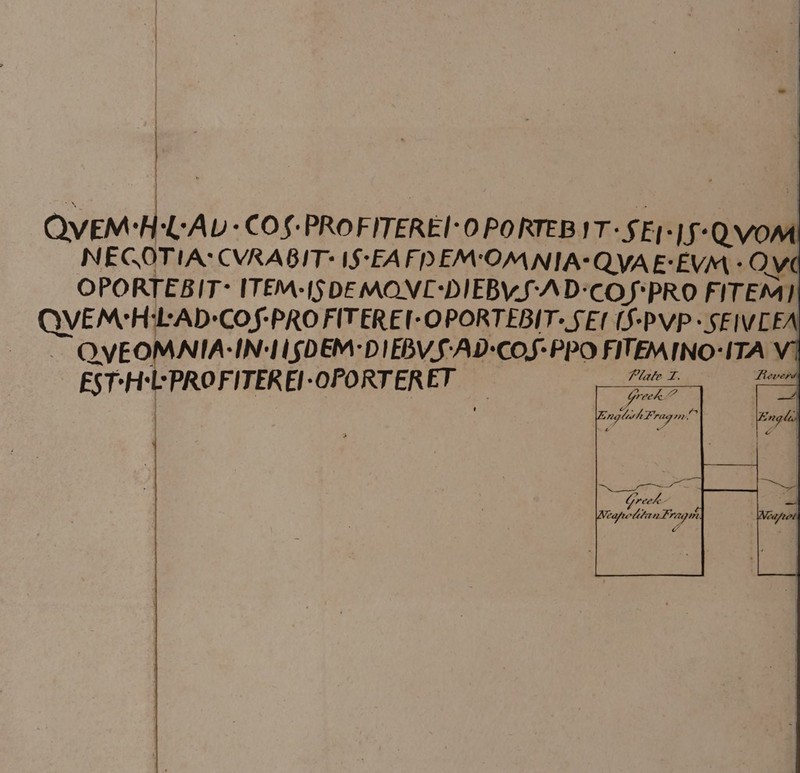 QVEM·H·L·AD·COS·PROFITEREI·OPORTEBIT·SEI·IS·QVOM
NEGOTIA·CVRABIT·IS·EAFDEM·OMNIA·QVAE·EVM·
OPORTEBIT·ITEM·ISDEMQVE·DIEBVS·AD·COS·PROFITEMI
QVEM·H·L·AD·COS·PROFITEREI·OPORTEBIT·SEI IS·PVP·SEIVEEA
QVEOMNIA·IN·IISDEM·DIEBVS·AD·COS·PPOFITEMINO·ITA V
EST·H·L·PROFITEREI·OPORTERET
Plate I.
Greek
English Fragm.t
Greek
Neapolitan Fragm.